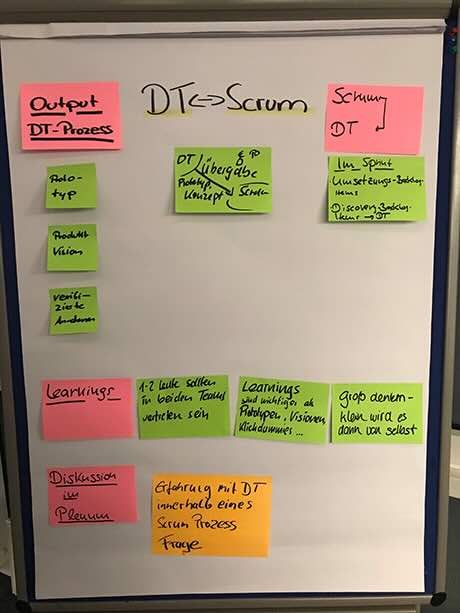 DT <-> Scrum
Output
DT-Prozess
Scrum
DT
Proto-
typ
DT
Übergabe
Prototyp
Konzept
Im Sprint
Umsetzungs-Backlog-
Items
Discovery-Backlog-
Items → DT
Produkt
Vision
verifi-
zierte
Annahmen
Learnings
1-2 Leute sollten
in beiden Teams
vertreten sein
Learnings
sind wichtiger als
Prototypen, Visionen,
Klickdummies...
Groß denken -
klein wird es
dann von selbst
Diskussion
im
Plenum
Erfahrung mit DT
innerhalb eines
Scrum Prozess
Frage